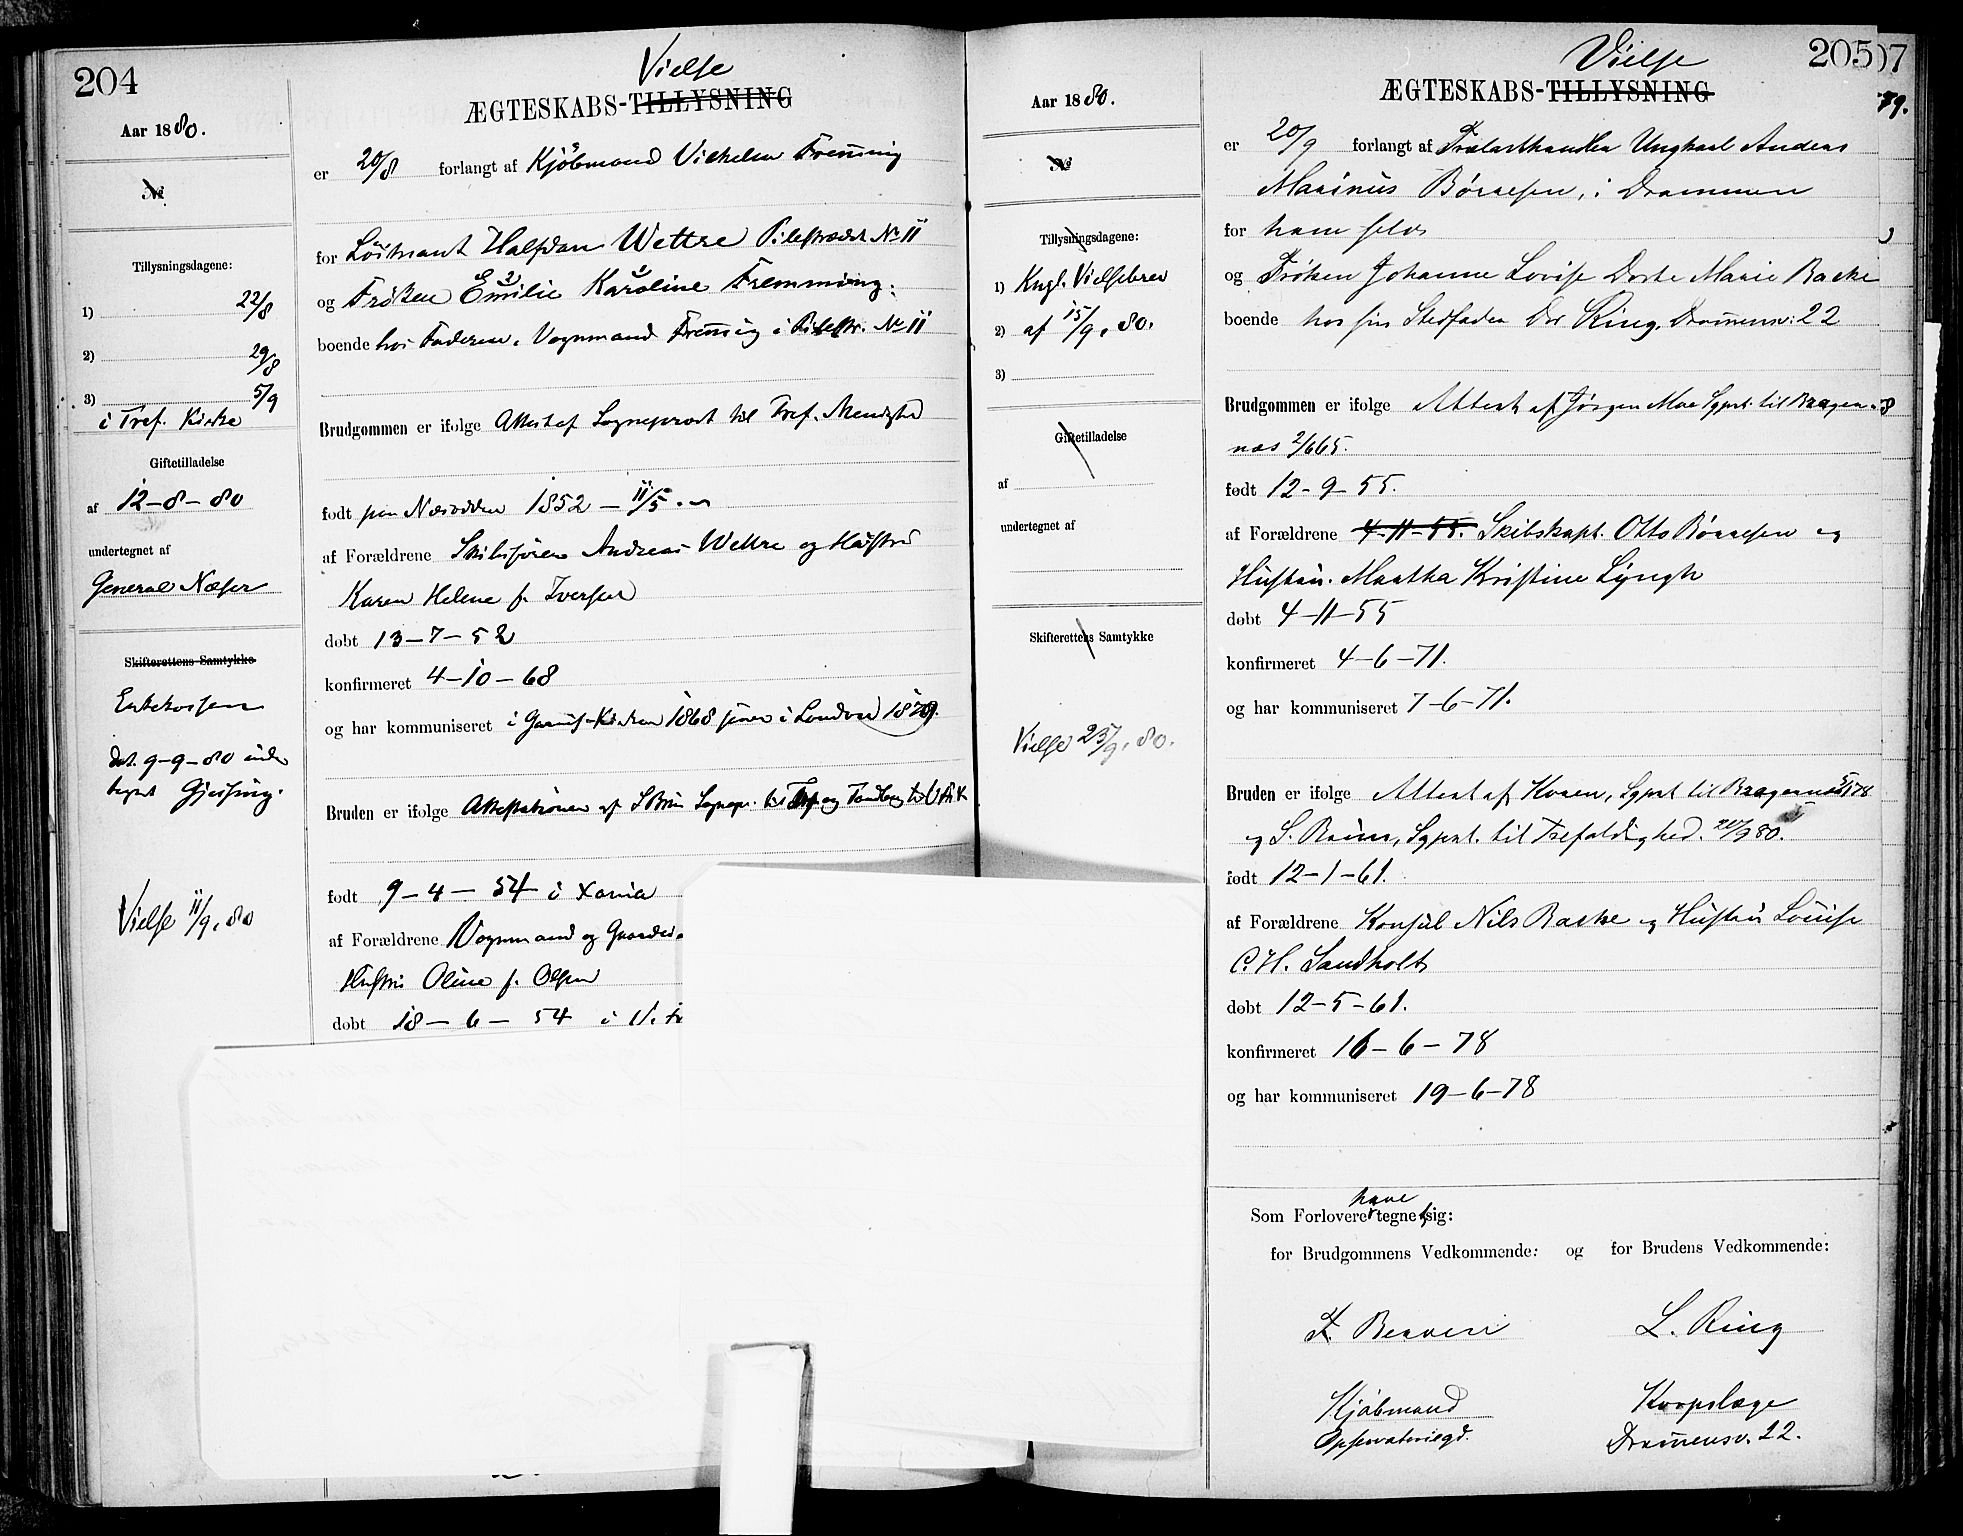 204
Aar 1880.
№
Tillysningsdagene:
1) 22/8
2) 29/8
3) 5/9
i Tref. Kirke
Giftetilladelse
af 12-8-80
undertegnet af
General Næser
Skifterettens Samtykke
dat. 9-9-80 under
tegnet
Vielse 11/9, 80
Vielse
ÆGTESKABS-TILLYSNING
er 20/8 forlangt af Kjöbmand Vilhelm Fremming
for Löitnant Halfdan Wettre Pilestrædet No 11
og Fröken Emilie Karoline Fremming
boende hos Faderen, Vognmand Fremming i Pilestr. No 11
Brudgommen er ifolge Attest af Sogneprest til Tref. Menighed
født paa Næsodden 1852 - 11/5
af Forældrene Andreas Wettre og Hustru
Karen Helene f. Iversen
døbt 13-7-52
konfirmeret 4-10-68
og har kommuniseret i Garnis-Kirken 1868 i London 1879.
Bruden er ifolge af Sognepr. til Tref og
født 9-4-54 i Xania
af Forældrene Vognmand og
Hustru Oline f. Olsen
døbt 18-6-54 i
205
07
79.
Aar 1880.
№
Tillysningsdagene:
1) Kngl. Vielsebrev
2) af 15/9, 80.
3)
Giftetilladelse
af
undertegnet af
Skifterettens Samtykke
Vielse 25/9, 80.
Vielse
ÆGTESKABS-TILLYSNING
er 20/9 forlangt af Trælasthandler Ungkarl Anders
Marinus Børresen, i Drammen
for ham selv
og Frøken Johanne Lovise Dorte Marie Backe
boende hos sin Stedfader Dr Ring, Drammensv: 22
Brudgommen er ifolge Attest af Jörgen Moe Sgprt. til Bragernæs
født 12-9-55.
af Forældrene 4-11-55. Skibskapt. Otto Børresen og
Hustru Martha Kristine Lyngh
døbt 4-11-55
konfirmeret 4-6-71.
og har kommuniseret 7-6-71.
Bruden er ifolge Attest af Hvoen, Sgprt til Bragernæs
og S. Bruun, Sgprt. til Trefoldighed. 20/9 80.
født 12-1-61.
af Forældrene Konsul Nils Backe og Hustru Louise
C. H. Sandholt
døbt 12-5-61.
konfirmeret 16-6-78
og har kommuniseret 19-6-78
Som Forlovere have tegnet sig:
for Brudgommens Vedkommende: og for Brudens Vedkommende:
L. Ring
Kjøbmand Korpslæge
Observatoriegd. Drammensv. 22.